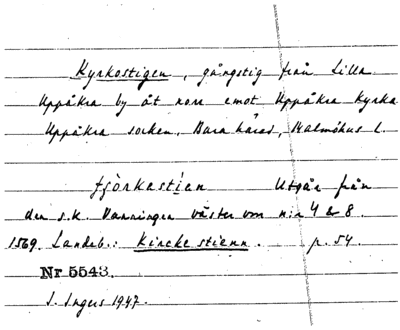 Kyrkostigen, gångstig från Lilla
Uppåkra by åt norr emot Uppåkra kyrka
Uppåkra socken, Bara härad, Malmöhus l.
Utgår från
den s.k. väster om n:r 4 & 8.
1569. Landeb.: Kircke stienn. p. 54.
Nr 5543.
I. Ingers 1947.